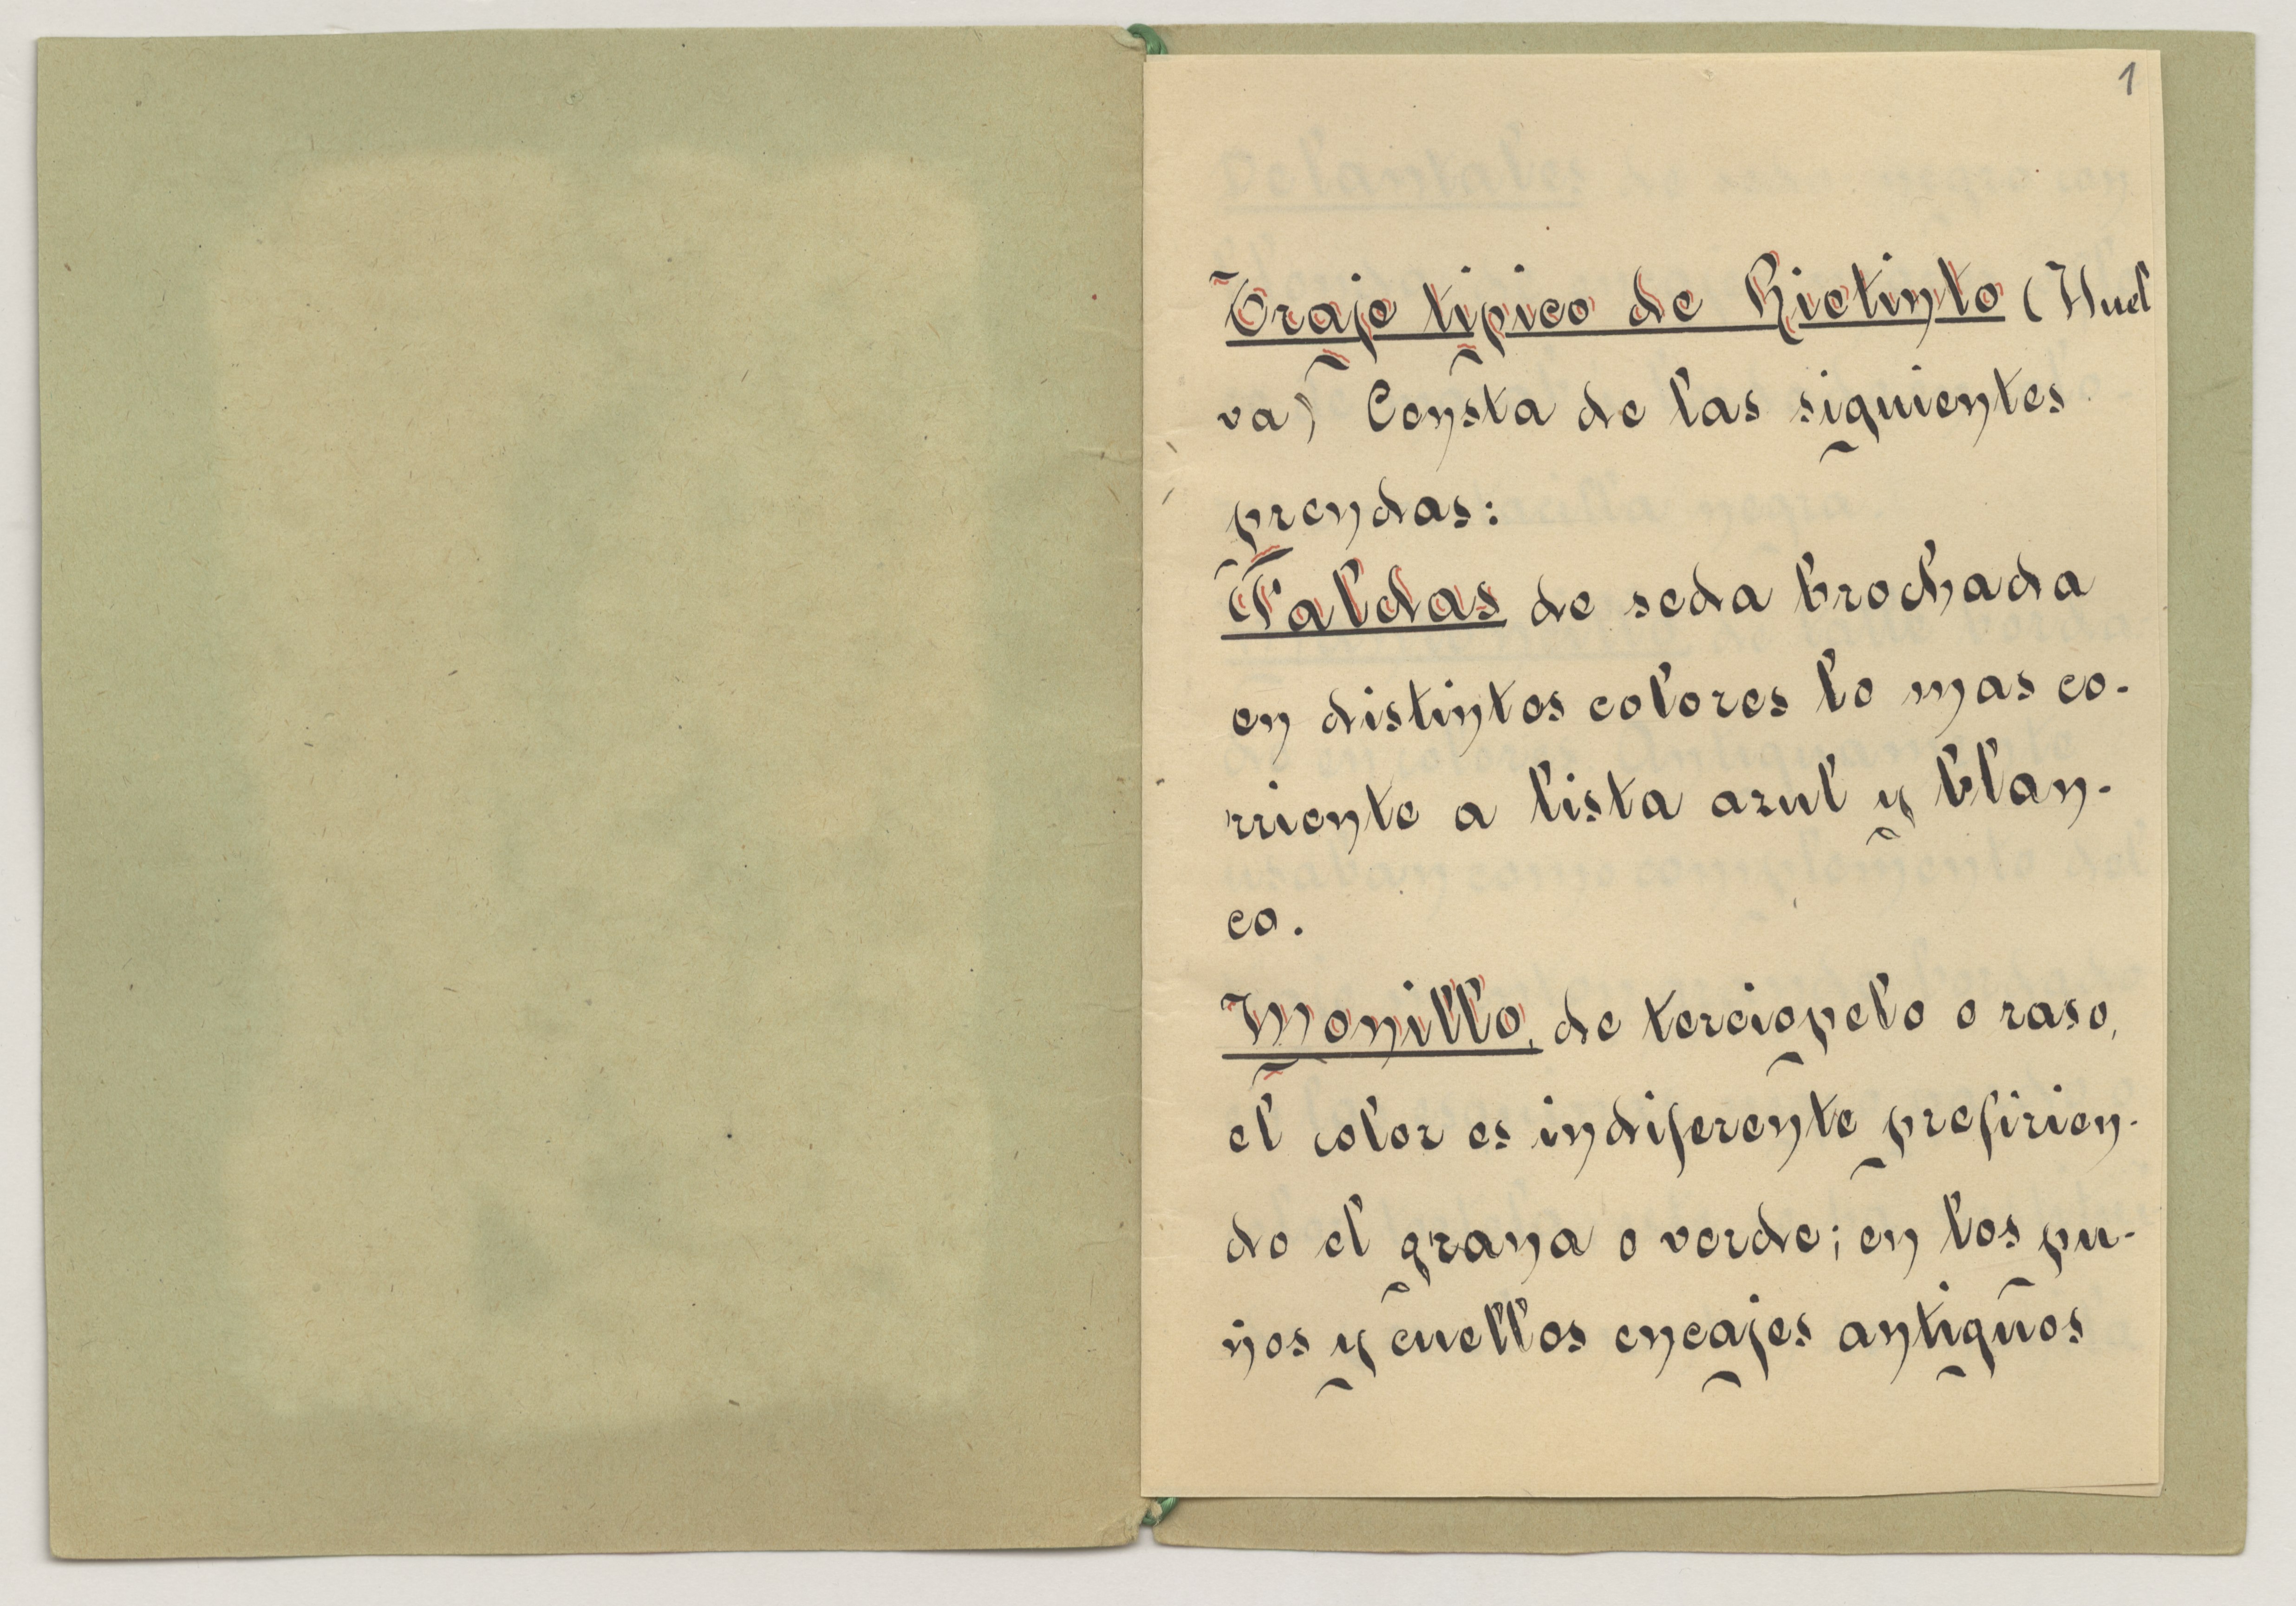 1
Traje tipico de Riotinto (Huel
va) Consta de las siguientes
prendas:
Faldas de seda brochada
en distintos colores lo mas co-
rriente a lista azul y blan-
co.
Monillo, de terciopelo o raso,
el color es indiferente prefirien-
do el grana o verde; en los pu-
ños y cuellos encajes antiguos